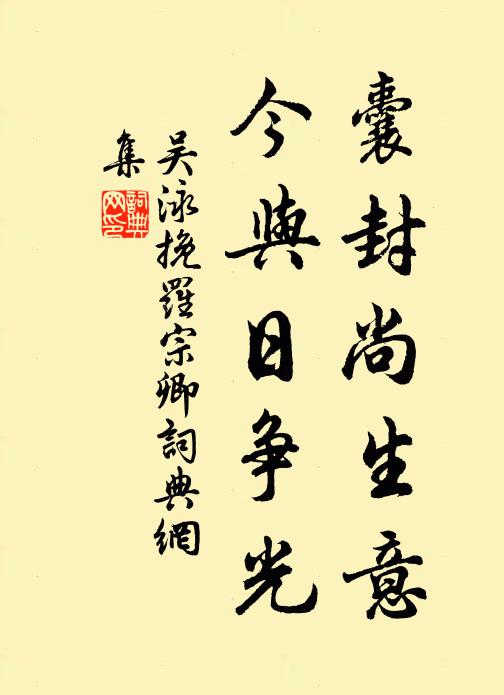 囊封尚生意
今與日争光
吴泳挽羅宗卿詞典網
集
詞典
网印